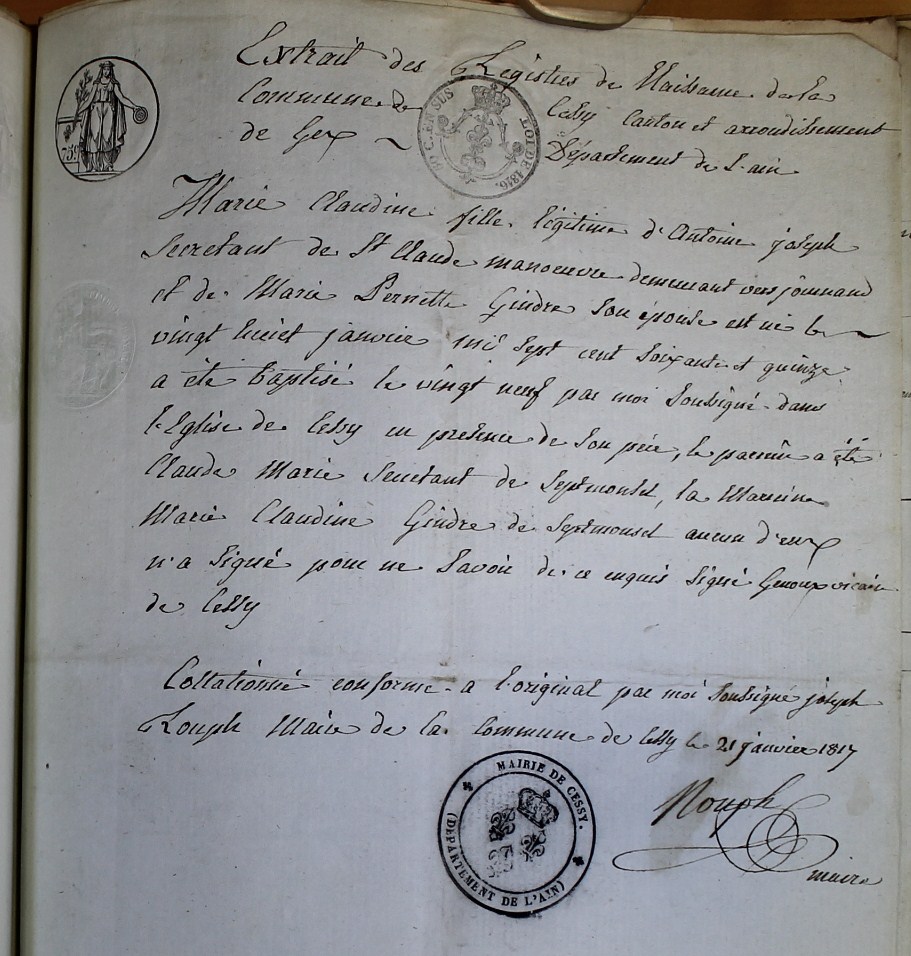 Extrait des Registres de Naissance de la
Commune de Cessy Canton et arrondissement
de Gex Département de l'ain
75
10 C. EN SUS
LOI DE 1816.
Marie Claudine fille légitime d'Antoine joseph
Secretant de St Claude manoeuvre demeurant vers journand
et de Marie Pernette Gindre son épouse est né le
vingt huict janvier mil sept cent soixante et quinze
a été baptisé le vingt neuf par moi soussigné dans
l'Eglise de Cessy en presence de son père, le parrain a été
Claude Marie Secretant de Septmonsel, la Marraine
Marie Claudine Gindre de Septmonsel aucun d'eux
n'a signé pour ne savoir de ce enquis signé Genoux vicaire
de Cessy
Collationné conforme a l'original par moi soussigné joseph
Rouph Maire de la Commune de Cessy le 21 janvier 1817
Rouph
maire
MAIRIE DE CESSY.
(DÉPARTEMENT DE L'AIN)